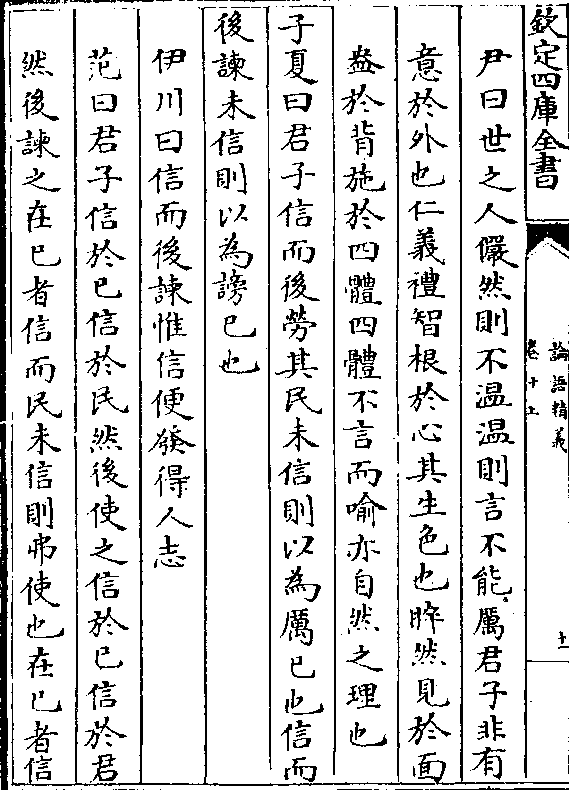 欽定四庫全書
論語精義
卷十上
十一
尹曰世之人儼然則不温温則言不能厲君子非有
意於外也仁義禮智根於心其生色也睟然見於面
盎於背施於四體四體不言而喻亦自然之理也
子夏曰君子信而後勞其民未信則以為厲已也信而
後諫未信則以為謗已也
伊川曰信而後諫惟信便發得人志
范曰君子信於已信於民然後使之信於已信於君
然後諫之在已者信而民未信則弗使也在已者信